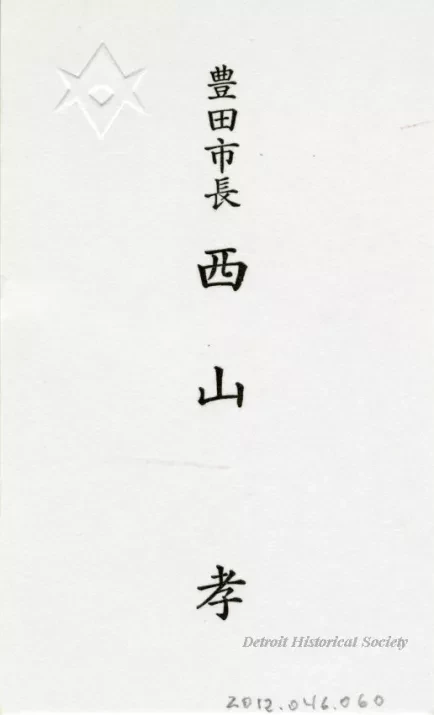 豊田市長
西山 孝
Detroit Historical Society
2012.046.060